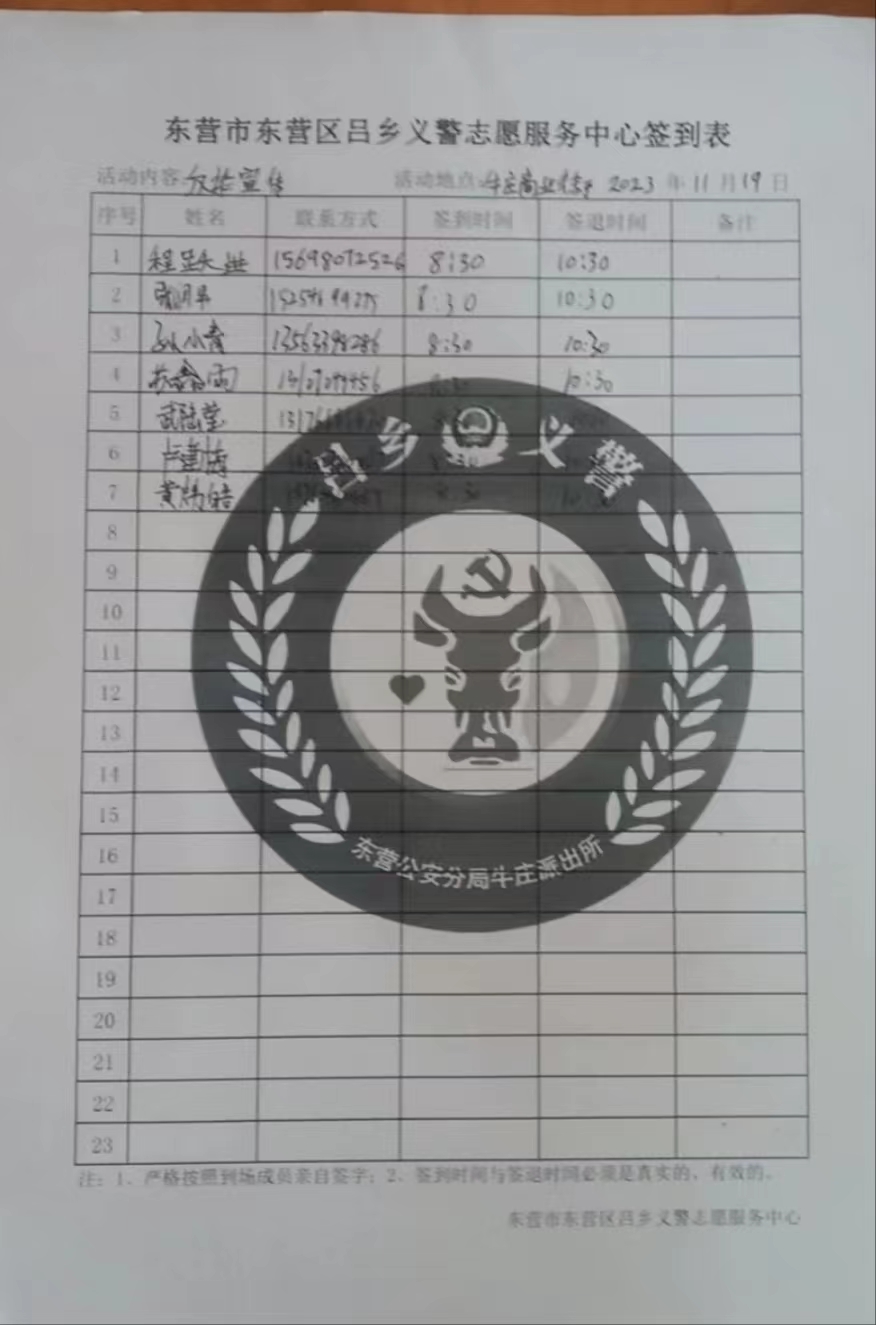 东营市东营区吕乡义警志愿服务中心签到表
活动内容:反诈宣传 活动地点:牛庄商业街 2023 年 11 月 19 日
序号 姓名 联系方式 签到时间 签退时间 备注
1 程跃进 15698072526 8:30 10:30
2 8:30 10:30
3 孙小青 13563398286 8:30 10:30
4 苏鑫雨 8:30 10:30
5 武陆莹 8:30 10:30
6 卢建博 8:30
7 黄炳皓 8:30 10:30
8
9
10
11
12
13
14
15
16
17
18
19
20
21
22
23
吕乡义警
东营公安分局牛庄派出所
注:1、严格按照到场成员亲自签字;2、签到时间与签退时间必须是真实的、有效的。
东营市东营区吕乡义警志愿服务中心